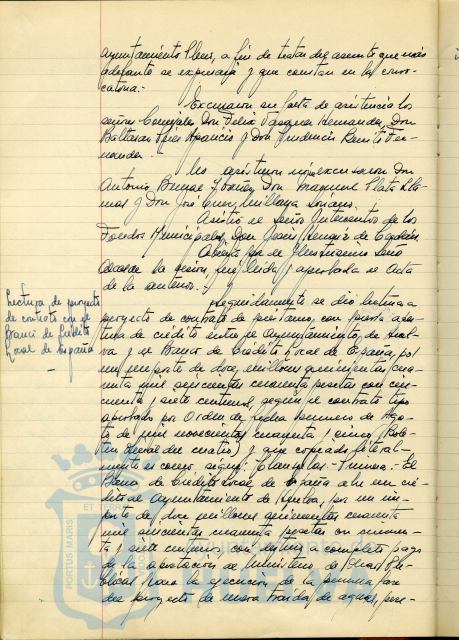 Ayuntamiento Pleno, a fin de tratar del asunto que más
adelante se expresará y que constan en la convo-
catoria.-
Excusaron su falta de asistencia los
señores Concejales Don Felix Vazquez Hernandez, Don
Baltasar Aparicio y Don Prudencio Benito Fer-
nandez.
No asistieron ni se excusaron Don
Antonio Bernal Ybañez, Don Manuel Plata Lla-
nas y Don José Millana Soriano.
Asistió el Señor Interventor de los
Fondos Municipales, Don Jesús de Capdón.
Abierta por el Ilustrísimo Señor
Alcalde la sesión, fué leida y aprobada el Acta
de la anterior.
Lectura de proyecto
de contrato con el
Banco de Crédito
Local de España
Seguidamente se dió lectura a
proyecto de contrato de préstamo, con previa aper-
tura de crédito entre el Ayuntamiento de Huel-
va y el Banco de Crédito Local de España, por
un importe de doce millones quinientas cuaren-
ta mil seiscientas cincuenta pesetas con cin-
cuenta y siete centimos, según el contrato tipo
aprobado por Orden de fecha primero de Agos-
to de mil novecientos cuarenta y cinco, (Bole-
tín Oficial del cuatro) y que copiado literal-
mente es como sigue: Clausulas.- Primera.- El
Banco de Crédito Local de España abre un cré-
dito al Ayuntamiento de Huelva, por un im-
porte de doce millones quinientas cuarenta
mil seiscientas cincuenta pesetas con cincuen-
ta y siete centimos, con destino a completo pago
de la aportación al Ministerio de Obras Pú-
blicas para la ejecución de la primera fase
del proyecto de nueva traida de aguas, pre-
PORTUS MARIS ET TERRE